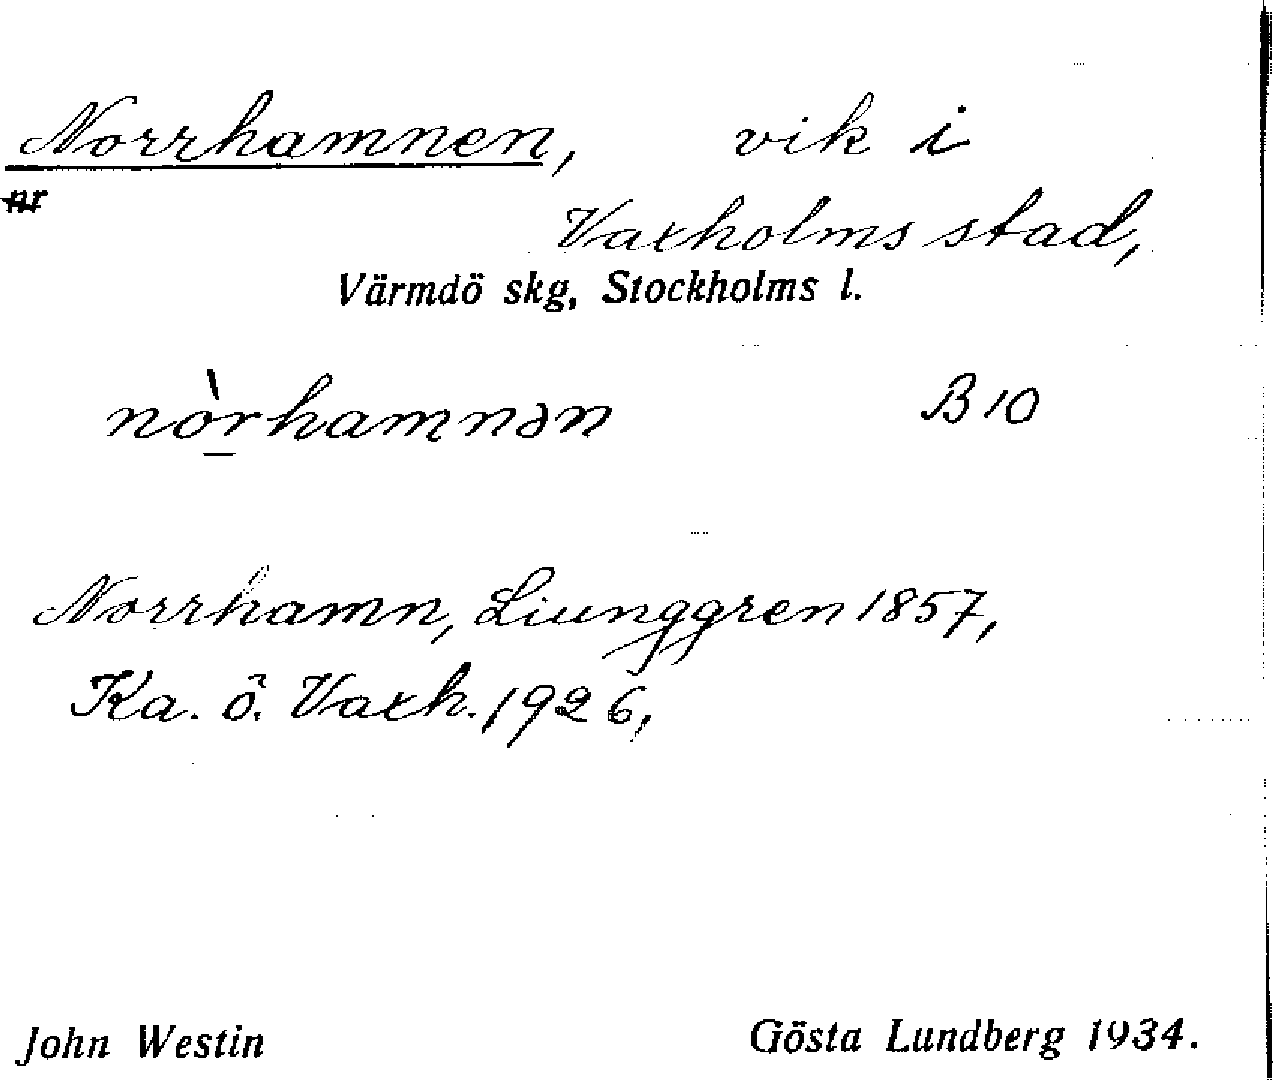 Norrhamnen, vik i
nr
Vaxholms stad,
Värmdö skg, Stockholms l.
nòr̲hamnən B 10
Norrhamn, Liunggren 1857,
Ka. ö. Vaxh. 1926,
John Westin Gösta Lundberg 1934.